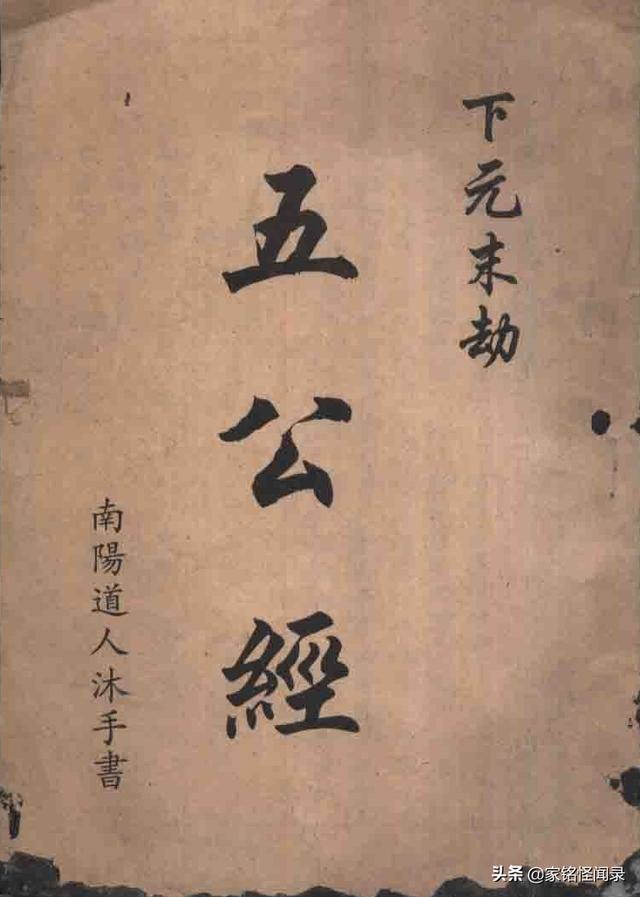 下元末劫
五公經
南陽道人沐手書
头条 @家铭怪闻录